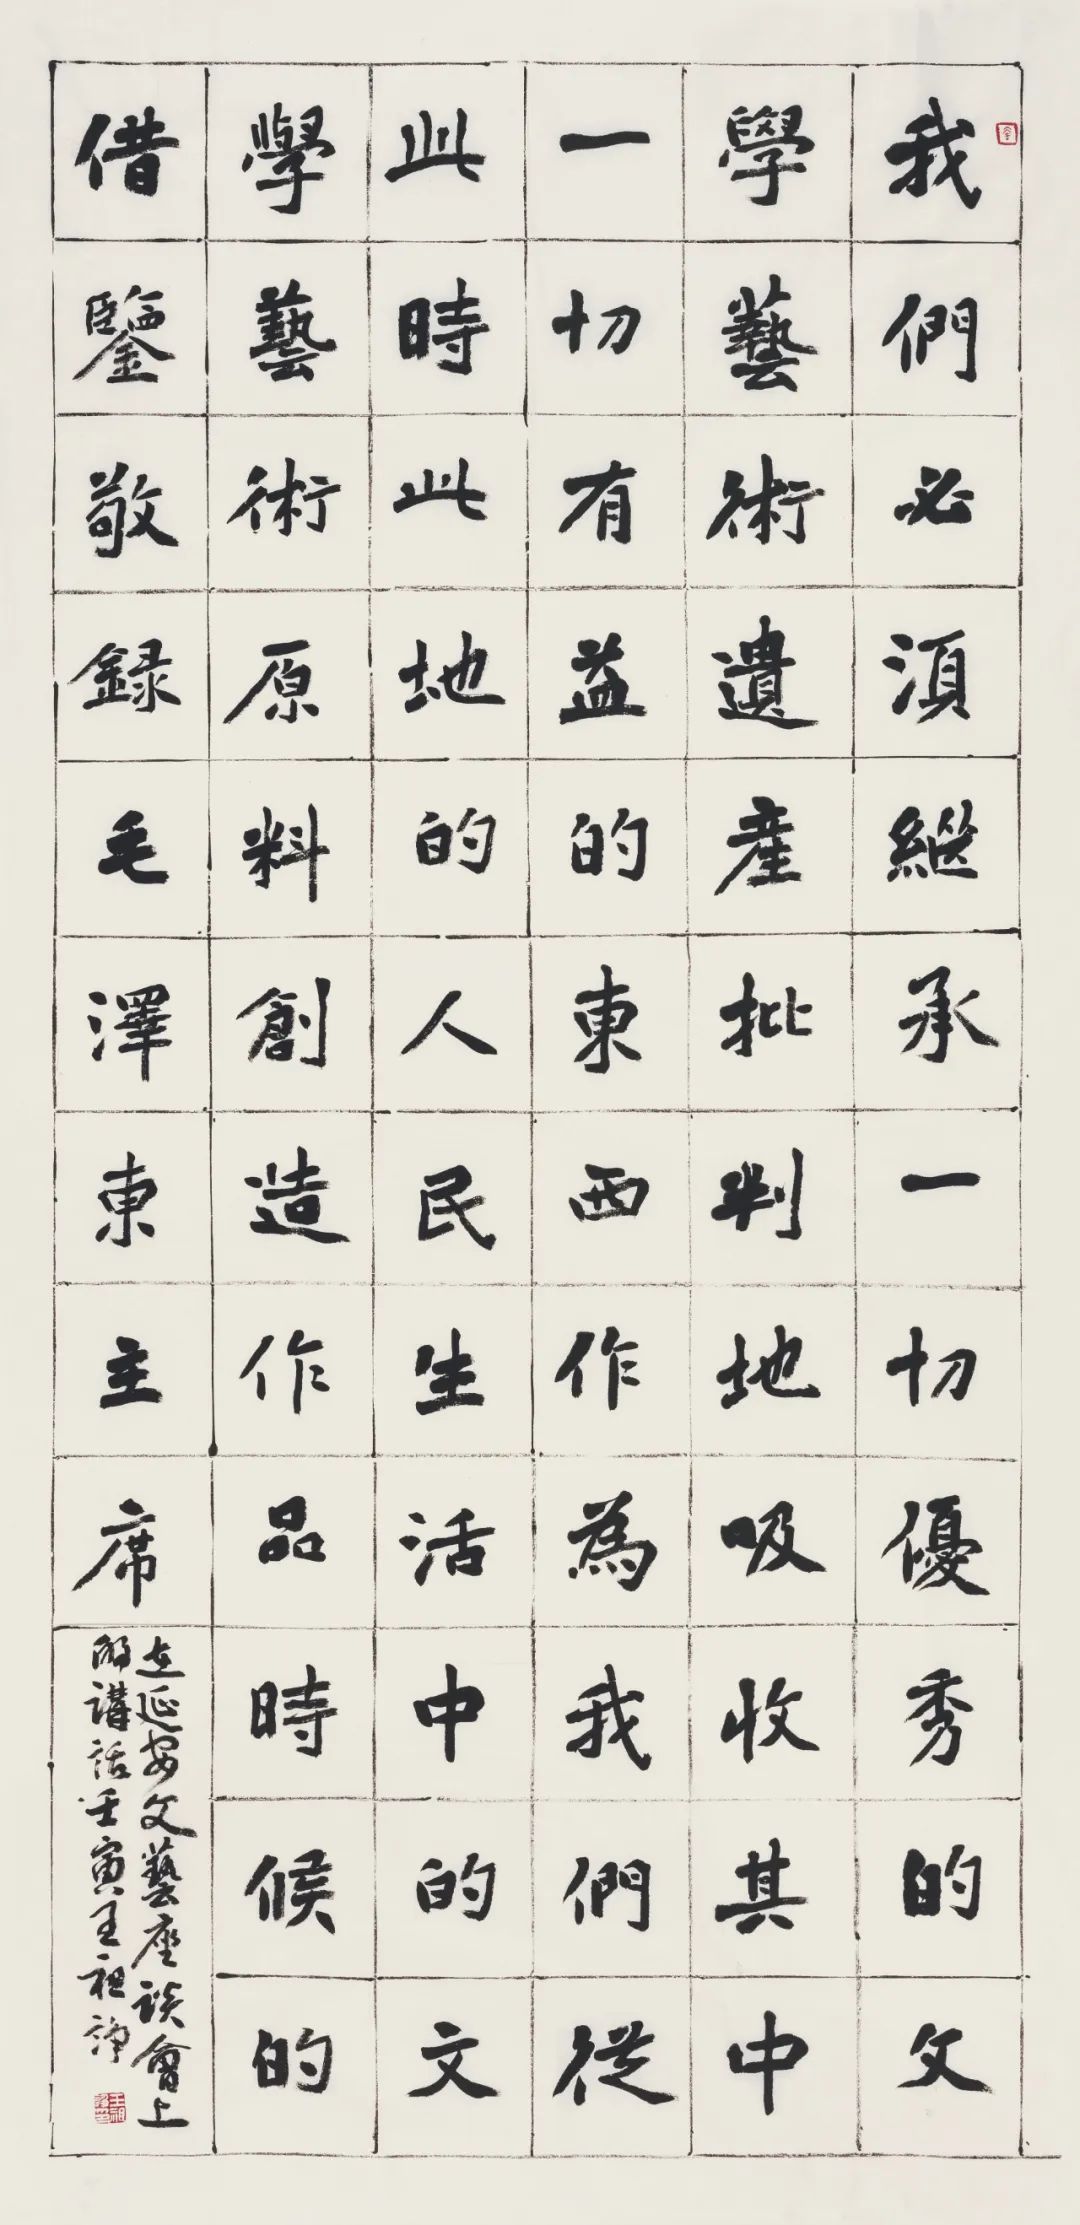 我們必須繼承一切優秀的文
學藝術遺產批判地吸收其中
一切有益的東西作為我們從
此時此地的人民生活中的文
學藝術原料創造作品時候的
借鑒敬錄毛澤東主席
在延安文藝座談會上
的講話壬寅王祖諍